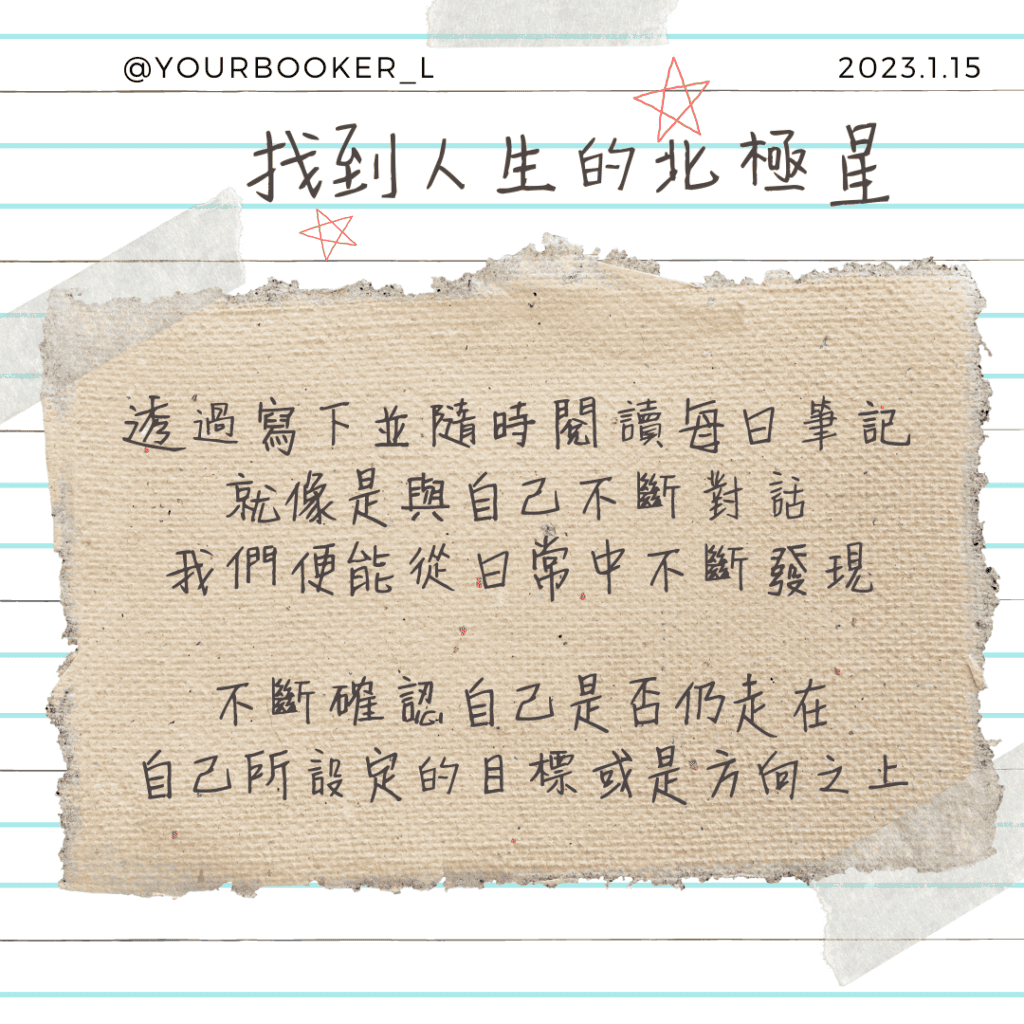 @YOURBOOKER_L
2023.1.15
找到人生的北極星
透過寫下並隨時閱讀每日筆記
就像是與自己不斷對話
我們便能從日常中不斷發現
不斷確認自己是否仍走在
自己所設定的目標或是方向之上